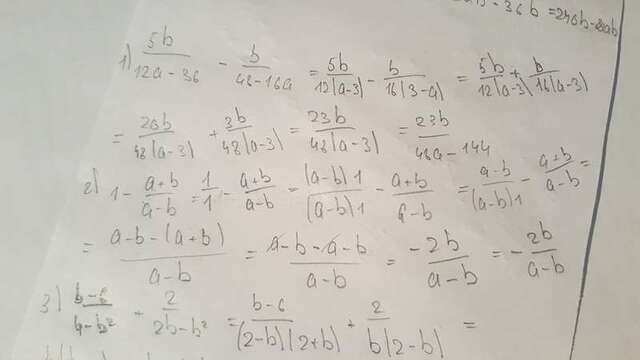 1) 5b/(12a-36) - b/(48-16a) = 5b/(12(a-3)) - b/(16(3-a)) = 5b/(12(a-3)) + b/(16(a-3))
= 20b/(48(a-3)) + 3b/(48(a-3)) = 23b/(48(a-3)) = 23b/(48a-144)
2) 1 - (a+b)/(a-b) = 1/1 - (a+b)/(a-b) = (a-b)1/((a-b)1) - (a+b)/(a-b) = (a-b)/((a-b)1) - (a+b)/(a-b) =
= (a-b-(a+b))/(a-b) = (a-b-a-b)/(a-b) = -2b/(a-b) = - 2b/(a-b)
3) (b-6)/(4-b²) + 2/(2b-b²) = (b-6)/((2-b)(2+b)) + 2/(b(2-b)) =